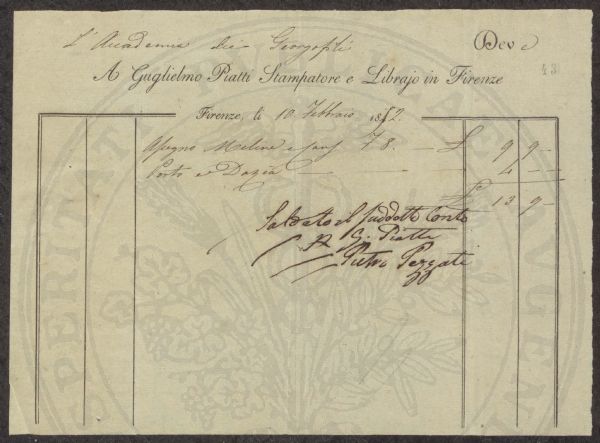 L'Accademia dei Georgofili Deve
43
A Guglielmo Piatti Stampatore e Librajo in Firenze
Firenze, li 10. Febbraio 1852.
7 8. — £ 9 9 —
Porto e Dazio — — — 4 —
£ 13 9 —
Saldato il suddotto Conto
G. Piatti
Pietro Pezzati